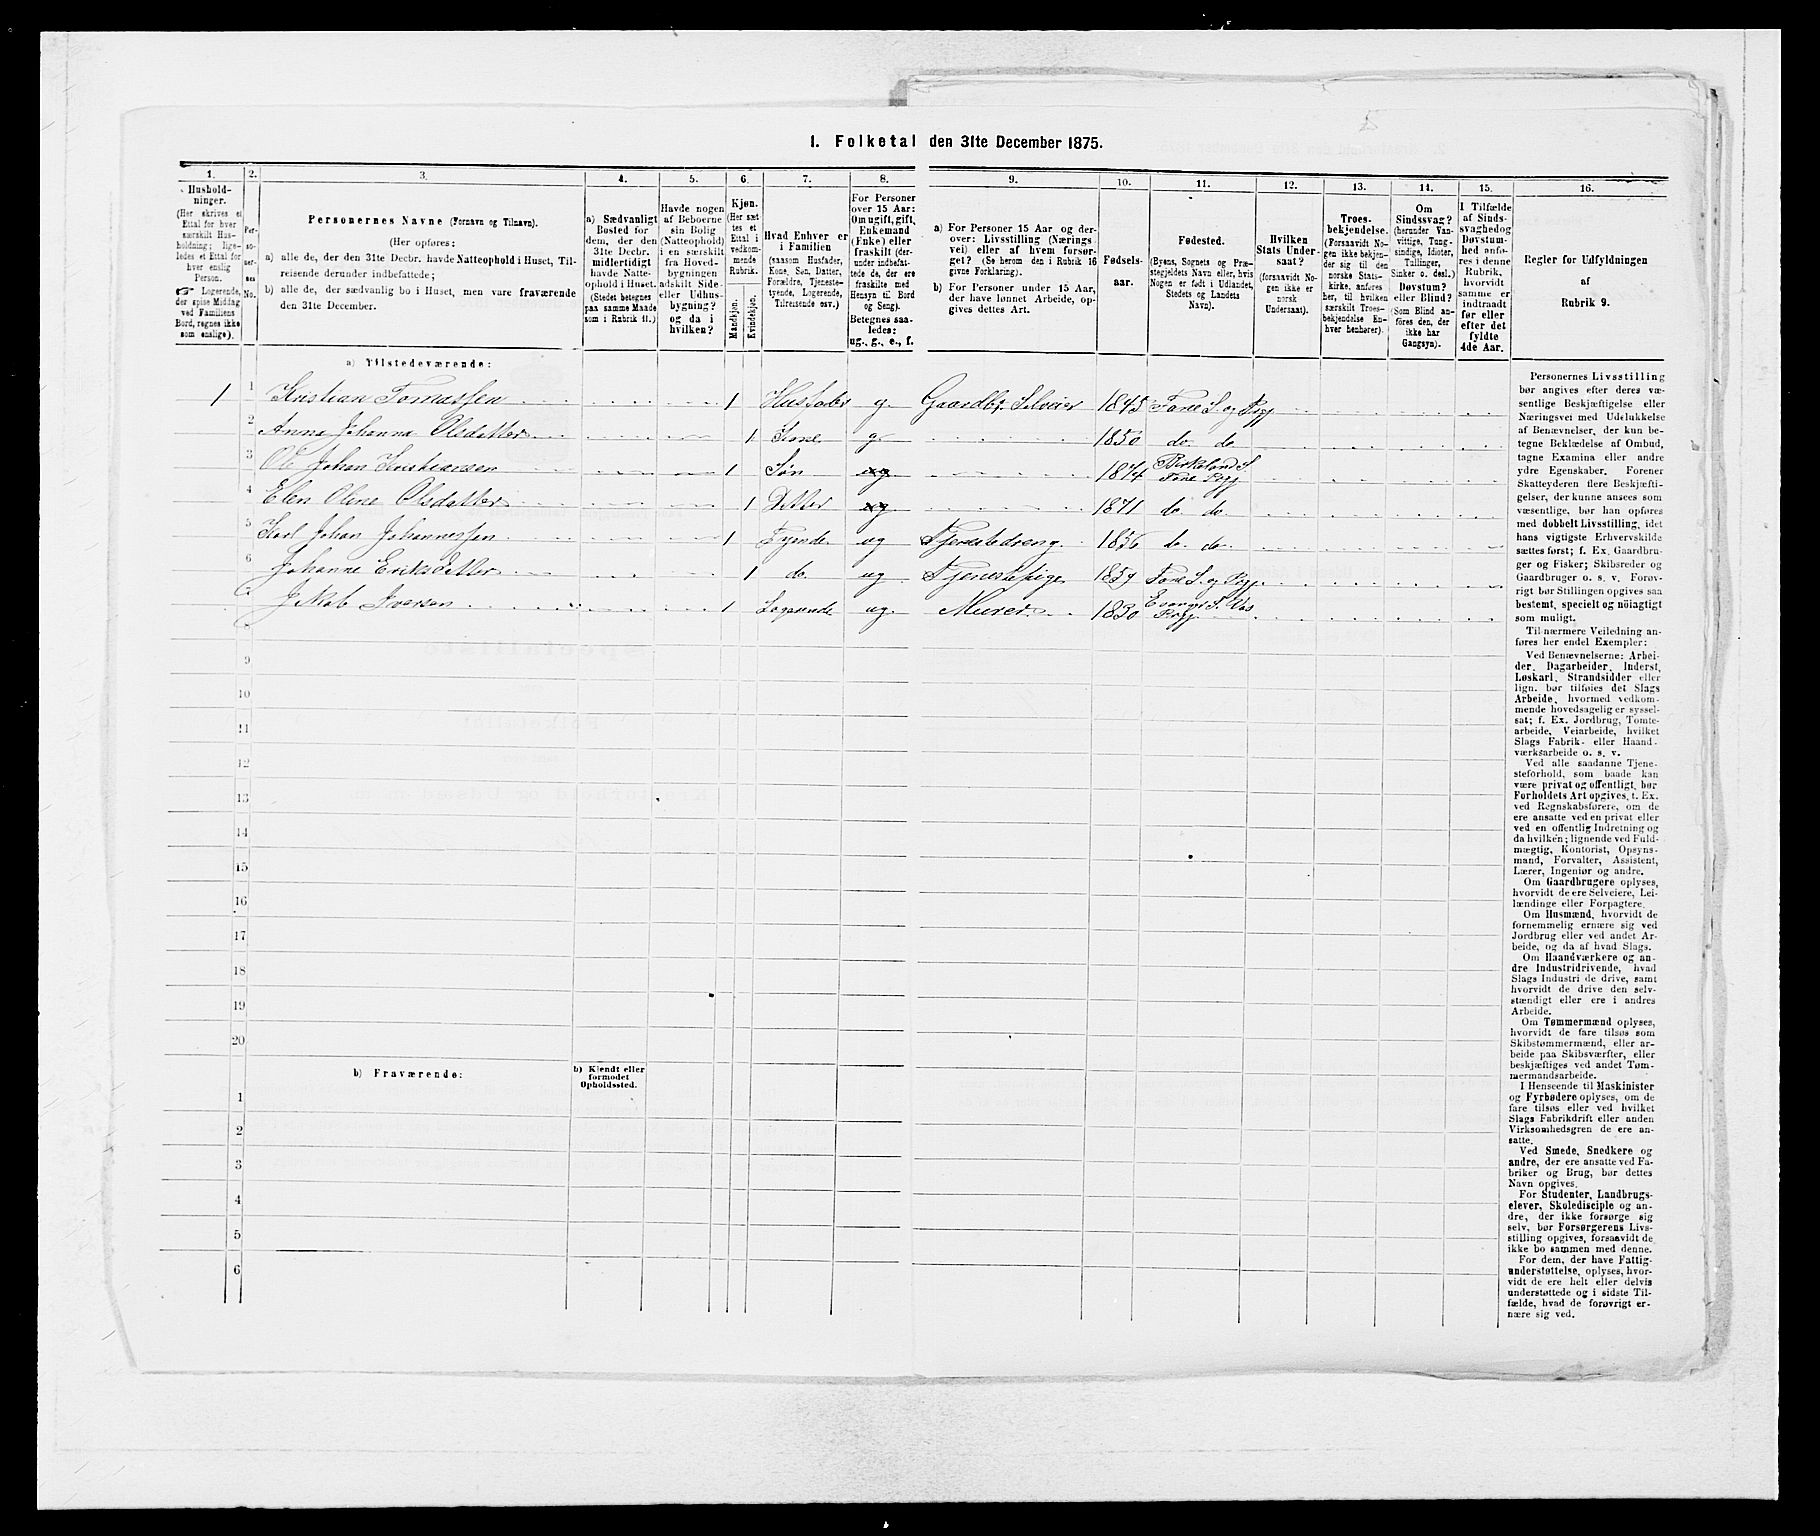 1. Folketal den 31te December 1875.
1. 2. 3. 4. 5. 6. 7. 8. 9. 10. 11. 12. 13. 14. 15. 16.
Hushold-
ninger.
(Her skrives et
Ettal for hver
særskilt Hus-
holdning; lige-
ledes et Ettal for
hver enslig
Person.
☞ Logerende,
der spise Middag
ved Familiens
Bord, regnes ikke
som enslige).
Per-
so-
ner-
nes
No.
Personernes Navne (Fornavn og Tilnavn).
(Her opføres:
a) alle de, der den 31te Decbr. havde Natteophold i Huset, Til-
reisende derunder indbefattede;
b) alle de, der sædvanlig bo i Huset, men vare fraværende
den 31te December.
a) Sædvanligt
Bosted for
dem, der den
31te Decbr.
midlertidigt
havde Natte-
ophold i Huset.
(Stedet betegnes
paa samme Maade
som i Rubrik 11.)
Havde nogen
af Beboerne
sin Bolig
(Natteophold)
i en særskilt
fra Hoved-
bygningen
adskilt Side-
eller Udhus-
bygning?
og da i
hvilken?
Kjøn.
(Her sæt
tes et
Ettal i
vedkom-
mende
Rubrik.
Mandkjøn.
Kvindekjøn.
Hvad Enhver er
i Familien
(saasom Husfader,
Kone, Søn, Datter,
Forældre, Tjeneste-
tyende, Logerende,
Tilreisende osv.)
For Personer
over 15 Aar:
Om ugift, gift,
Enkemand
(Enke) eller
fraskilt (der-
under indbefat-
tede de, der ere
fraskilte med
Hensyn til Bord
og Seng).
Betegnes saa-
ledes:
ug., g., e., f.
a) For Personer 15 Aar og der-
over: Livsstilling (Nærings
vei) eller af hvem forsør-
get? (Se herom den i Rubrik 16
givne Forklaring).
b) For Personer under 15 Aar,
der have lønnet Arbeide, op-
gives dettes Art.
Fødsels-
aar.
Fødested.
(Byens, Sognets og Præ-
stegjeldets Navn eller, hvis
Nogen er født i Udlandet,
Stedets og Landets
Navn).
Hvilken
Stats Under-
saat?
(forsaavidt No-
gen ikke er
norsk
Undersaat).
Troes-
bekjendelse.
(Forsaavidt No-
gen ikke bekjen-
der sig til den
norske Stats-
kirke, anføres
her, til hvilken
særskilt Troes-
bekjendelse En-
hver henhører).
Om
Sindssvag?
(herunder Van-
vittige, Tung-
sindige, Idioter,
Tullinger,
Sinker o. desl.)
Døvstum?
eller Blind?
(Som Blind an-
føres den, der
ikke har
Gangsyn).
I Tilfælde
af Sinds-
svaghed og
Døvstum-
hed anfø-
res i denne
Rubrik,
hvorvidt
samme er
indtraadt
før eller
efter det
fyldte
4de Aar.
Regler for Udfyldningen
af
Rubrik 9.
a) Tilstedeværende:
1 1 Kristian Tomassen 1 Husfader g. Gaardbr. Selveier 1845 Fane S. og Prgj
2 Anna Johanna Olsdatter 1 Kone g. 1850 do do
3 Ole Johan Kristiansen 1 Søn ug 1874 Birkeland S Fane Prgj
4 Elen Oline Olsdatter 1 Datter ug 1871 do do
5 Karl Johan Johannessen 1 Tyende ug Tjenestedreng 1856 do do
6 Johanne Eriksdatter 1 do ug Tjenestepige 1854 Fane S. og Prgj.
Jakob Iversen 1 Logerende ug. Murer 1830 Evanger S. Vos Prgj.
9
10
11
12
13
14
15
16
17
18
19
20
b) Fraværende:
b) Kjendt eller
formodet
Opholdssted.
1
2
3
4
5
6
Personernes Livsstilling
bør angives efter deres væ-
sentlige Beskjæftigelse eller
Næringsvei med Udelukkelse
af Benævnelser, der kun be-
tegne Beklædelse af Ombud,
tagne Examina eller andre
ydre Egenskaber. Forener
Skatteyderen flere Beskjæfti-
gelser, der kunne ansees som
væsentlige, bør han opføres
med dobbelt Livsstilling, idet
hans vigtigste Erhvervskilde
sættes først; f. Ex. Gaardbru-
ger og Fisker; Skibsreder og
Gaardbruger o. s. v. Forøv-
rigt bør Stillingen opgives saa
bestemt, specielt og nøiagtigt
som muligt.
Til nærmere Veiledning an-
føres her endel Exempler:
Ved Benævnelserne: Arbei-
der, Dagarbeider, Inderst,
Løskarl, Strandsidder eller
lign. bør tilføies det Slags
Arbeide, hvormed vedkom-
mende hovedsagelig er syssel-
sat; f. Ex. Jordbrug, Tomte-
arbeide, Veiarbeide, hvilket
Slags Fabrik- eller Haand-
værksarbeide o. s. v.
Ved alle saadanne Tjene-
steforhold, som baade kan
være privat og offentligt, bør
Forholdets Art opgives, t. Ex.
ved Regnskabsførere, om de
ere ansatte ved en privat eller
ved en offentlig Indretning og
da hvilken; lignende ved Fuld-
mægtig, Kontorist, Opsyns-
mand, Forvalter, Assistent,
Lærer, Ingeniør og andre.
Om Gaardbrugere oplyses,
hvorvidt de ere Selveiere, Lei-
lændinge eller Forpagtere.
Om Husmænd, hvorvidt de
fornemmelig ernære sig ved
Jordbrug eller ved andet Ar-
beide, og da af hvad Slags.
Om Haandværkere og an-
dre Industridrivende, hvad
Slags Industri de drive, samt
hvorvidt de drive den selv-
stændigt eller ere i andres
Arbeide.
Om Tømmermænd oplyses,
hvorvidt de fare tilsøs som
Skibstømmermænd, eller ar-
beide paa Skibsværfter, eller
beskjæftiges ved andet Tøm-
mermandsarbeide.
I Henseende til Maskinister
og Fyrbødere oplyses, om de
fare tilsøs eller ved hvilket
Slags Fabrikdrift eller anden
Virksomhedsgren de ere an-
satte.
Ved Smede, Snedkere og
andre, der ere ansatte ved Fa-
briker og Brug, bør dettes
Navn opgives.
For Studenter, Landbrugs-
elever, Skoledisciple og an-
dre, der ikke forsørge sig
selv, bør Forsørgerens Livs-
stilling opgives, forsaavidt de
ikke bo sammen med denne.
For dem, der have Fattig-
understøttelse, oplyses, hvor-
vidt de ere helt eller delvis
understøttede og i sidste Til-
fælde, hvad de forøvrigt er-
nære sig ved.